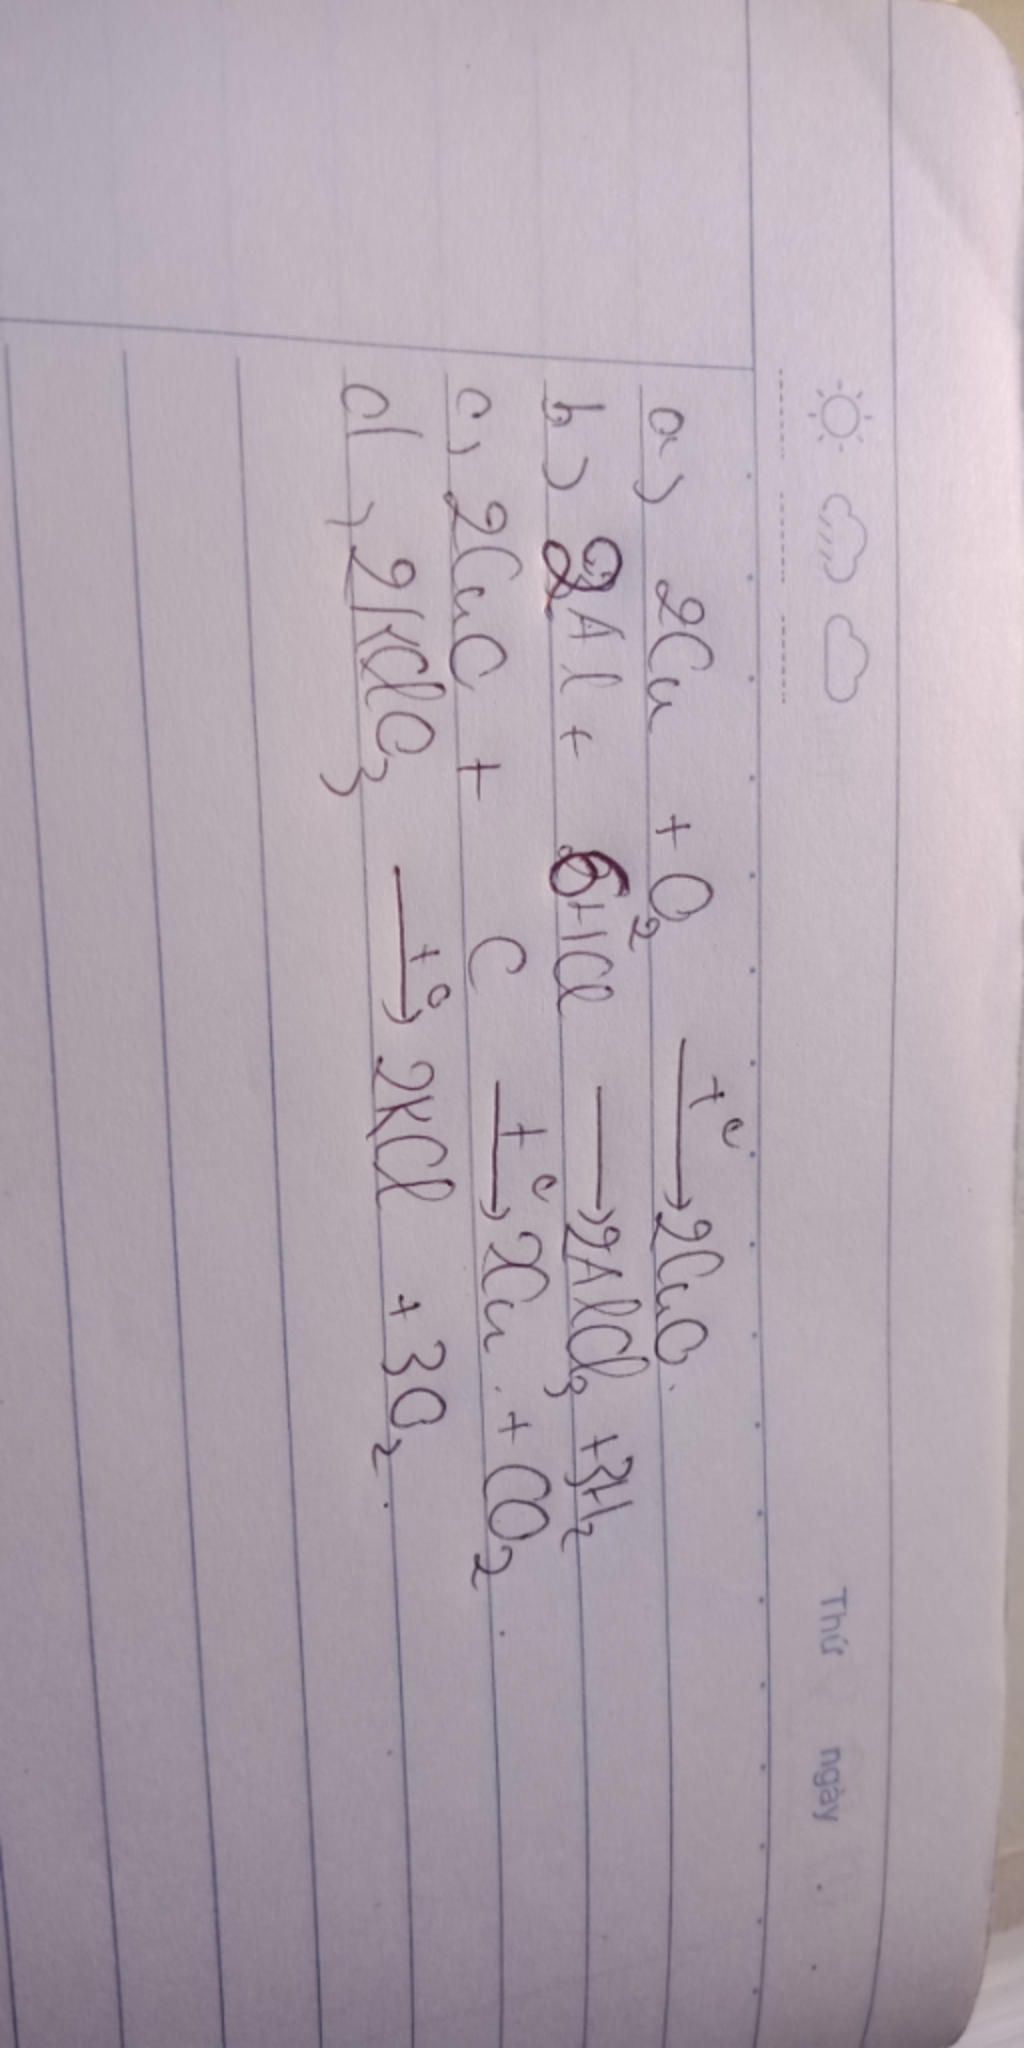 Thứ ngày
a) 2Cu + O₂ —t°→ 2CuO.
b) 2Al + 6HCl ⟶ 2AlCl₃ + 3H₂
c) 2CuO + C —t°→ 2Cu + CO₂.
d) 2KClO₃ —t°→ 2KCl + 3O₂.